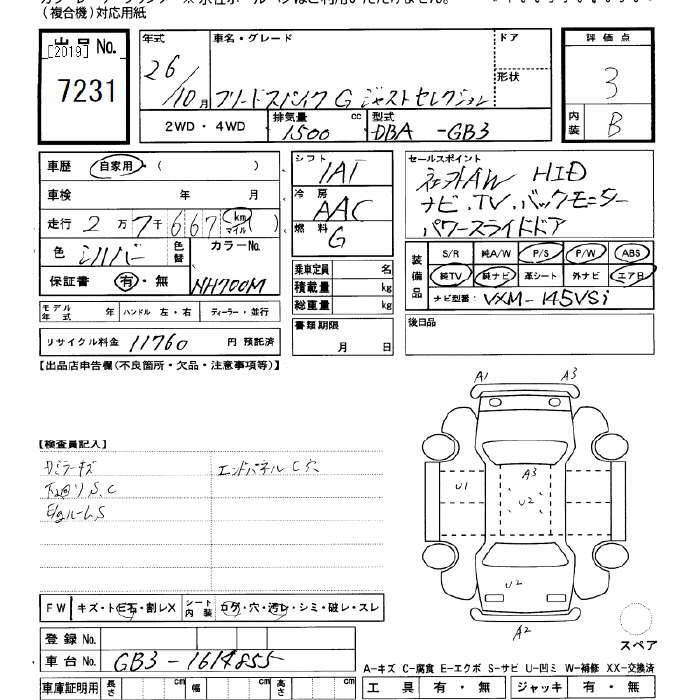 (複合機)対応用紙
出品 No.
[2019]
7231
年式
26/10月
車名・グレード
フリードスパイク G ジャストセレクション
ドア
形状
2WD・4WD
排気量 1500 cc
型式 DBA -GB3
評価点
3
内装 B
車歴 自家用・( )
車検 年 月
走行 2万7千667 km マイル ( )
色 シルバー 色替
カラーNo. NH700M
保証書 有・無
モデル年式 年 ハンドル 左・右 ディーラー・並行
リサイクル料金 11760 円 預託済
シフト IAT
冷房 AAC
燃料 G
乗車定員 名
積載量 kg
総重量 kg
書類期限
月 日
セールスポイント
社外AW HID
ナビ.TV.バックモニター
パワースライドドア
装備品
S/R 純A/W P/S P/W ABS
純TV 純ナビ 革シート 外ナビ エアB
ナビ型番: VXM-145VSi
後日品
【出品店申告欄(不良箇所・欠品・注意事項等)】
【検査員記入】
エンドパネルC
下回りS.C
A1 A3
A3
U1
U2
U2
A2
スペア
FW キズ・トビ石・割レX
シート内装 コゲ・穴・汚レ・シミ・破レ・スレ
登録 No.
車台 No. GB3-1614855
車庫証明用 長さ cm 幅 cm 高さ cm
A-キズ C-腐食 E-エクボ S-サビ U-凹ミ W-補修 XX-交換済
工具 有・無 ジャッキ 有・無